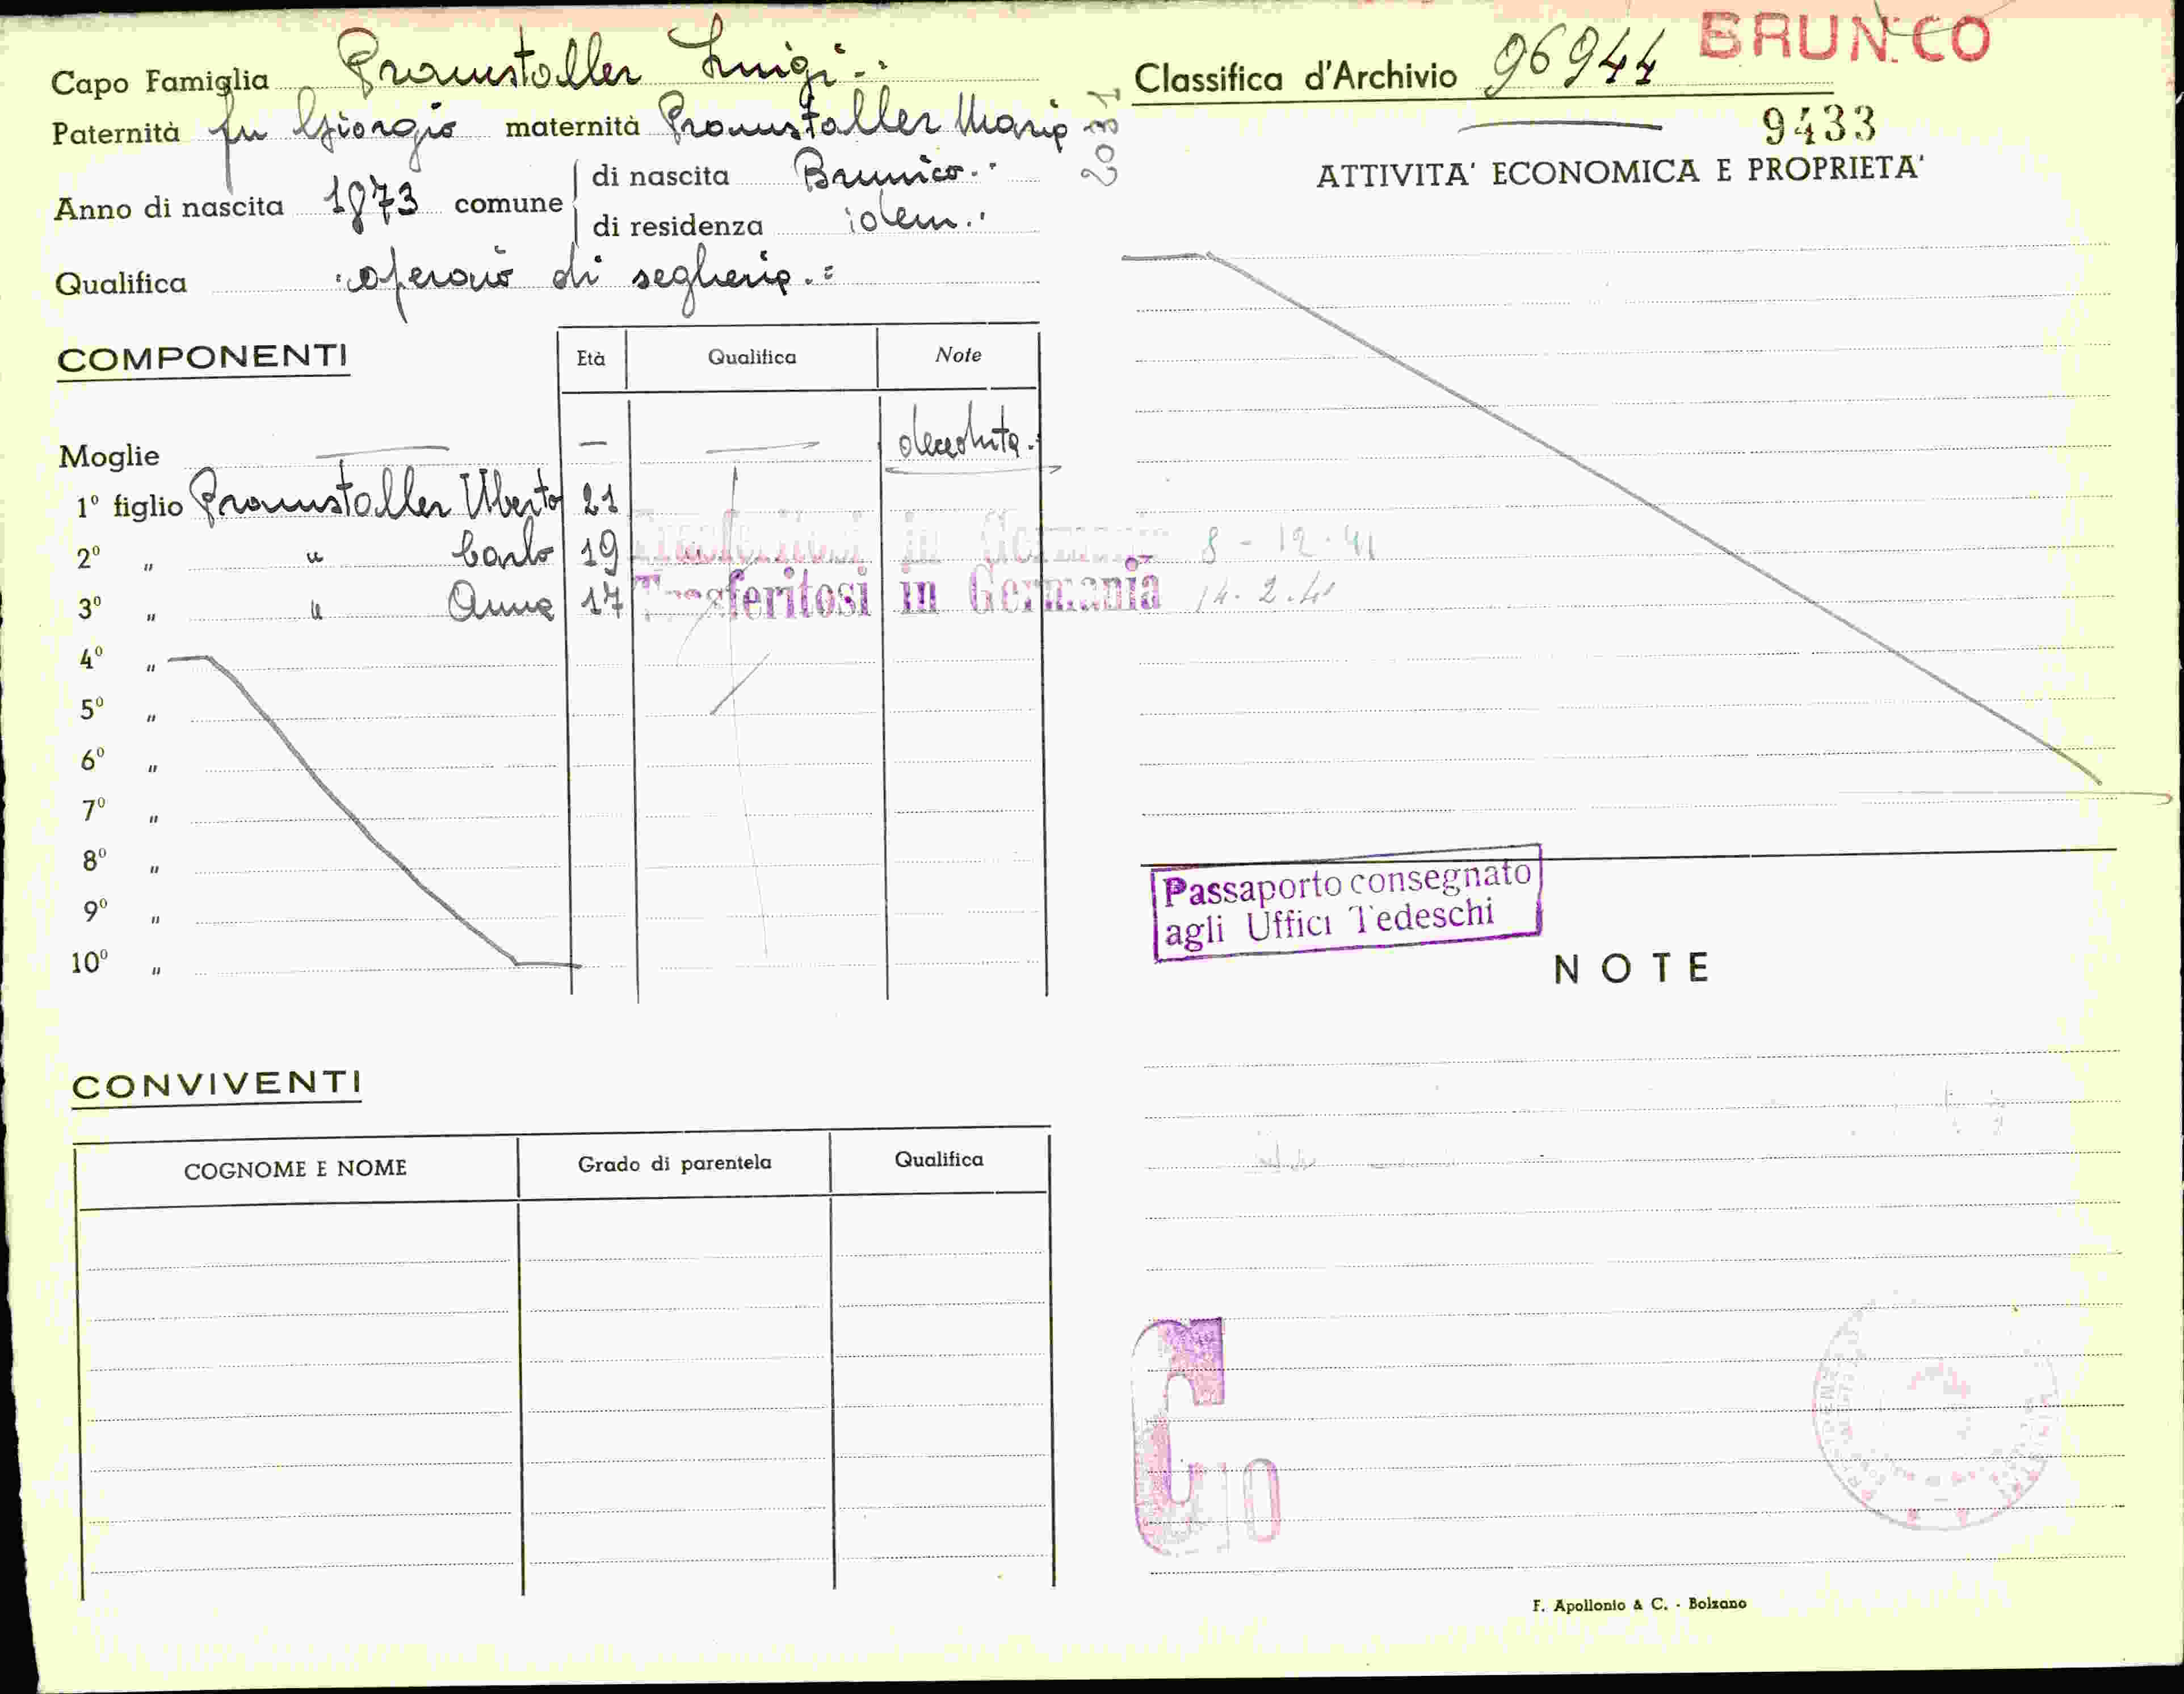 Capo Famiglia Pramstaller Luigi
Paternità fu Giorgio maternità Pramstaller Maria
Anno di nascita 1873 comune di nascita Brunico
di residenza idem
Qualifica operaio di segheria
COMPONENTI Età Qualifica Note
Moglie — deceduta
1º figlio Pramstaller Uberto 21
2º „ " Carlo 19 Trasferitosi in Germania 8-12-41
3º „ " Anna 17 Trasferitosi in Germania 14.2.41
4º „
5º „
6º „
7º „
8º „
9º „
10º „
CONVIVENTI
COGNOME E NOME Grado di parentela Qualifica
Classifica d'Archivio 96944 BRUNICO
9433
20331
ATTIVITA' ECONOMICA E PROPRIETA'
Passaporto consegnato
agli Uffici Tedeschi
NOTE
F. Apollonio & C. - Bolzano